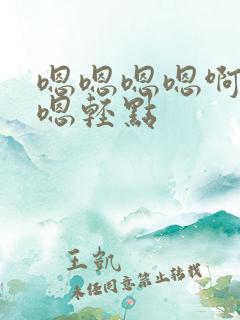 嗯嗯嗯嗯啊
嗯輕點
王凱
未经同意禁止转载